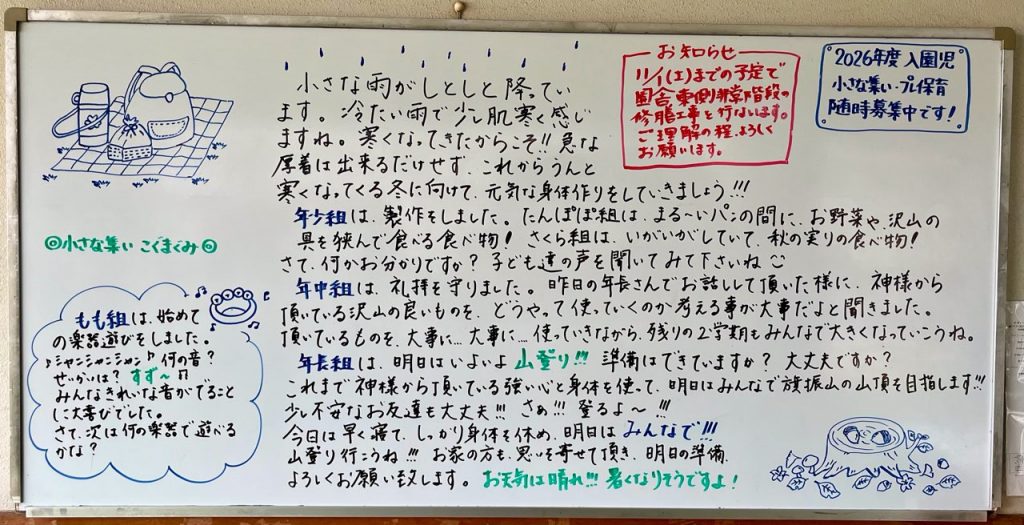 小さな雨がしとしと降ってい
ます。冷たい雨で少し肌寒く感じ
ますね。寒くなってきたからこそ!!急な
厚着は出来るだけせず、これからうんと
寒くなってくる冬に向けて、元気な身体作りをしていきましょう!!!
年少組は、製作をしました。たんぽぽ組は、まる〜いパンの間に、お野菜や、沢山の
具を挟んで食べる食べ物!さくら組は、いがいがしていて、秋の実りの食べ物!
さて、何かお分かりですか?子ども達の声を聞いてみて下さいね
年中組は、礼拝を守りました。昨日の年長さんでお話しして頂いた様に、神様から
頂いている沢山の良いものを、どうやって使っていくのか考える事が大事だよと聞きました。
頂いているものを、大事に…大事に…使っていきながら、残りの2学期もみんなで大きくなっていこうね。
年長組は、明日はいよいよ山登り!!!準備はできていますか?大丈夫ですか?
これまで神様から頂いている強い心と身体を使って、明日はみんなで旗振山の山頂を目指します!!!
少し不安なお友達も大丈夫!!!さぁ!!!登るよ〜!!!
今日は早く寝て、しっかり身体を休め、明日はみんなで!!!
山登り行こうね!!!お家の方も、思いを寄せて頂き、明日の準備、
よろしくお願い致します。お天気は晴れ!!!暑くなりそうですよ!
お知らせ
11/1(土)までの予定で
園舎東側非常階段の
修脂工事を行ないます。
ご理解の程、よろしく
お願います。
2026年度入園児
小さな集い・プレ保育
随時募集中です!
◎小さな集い こぐまぐみ◎
もも組は、始めて
の楽器遊びをしました。
♪シャンシャンシャン♪何の音?
せいかいは?すず〜♫
みんなきれいな音がでること
に大喜びでした。
さて、次は何の楽器で遊べる
かな?